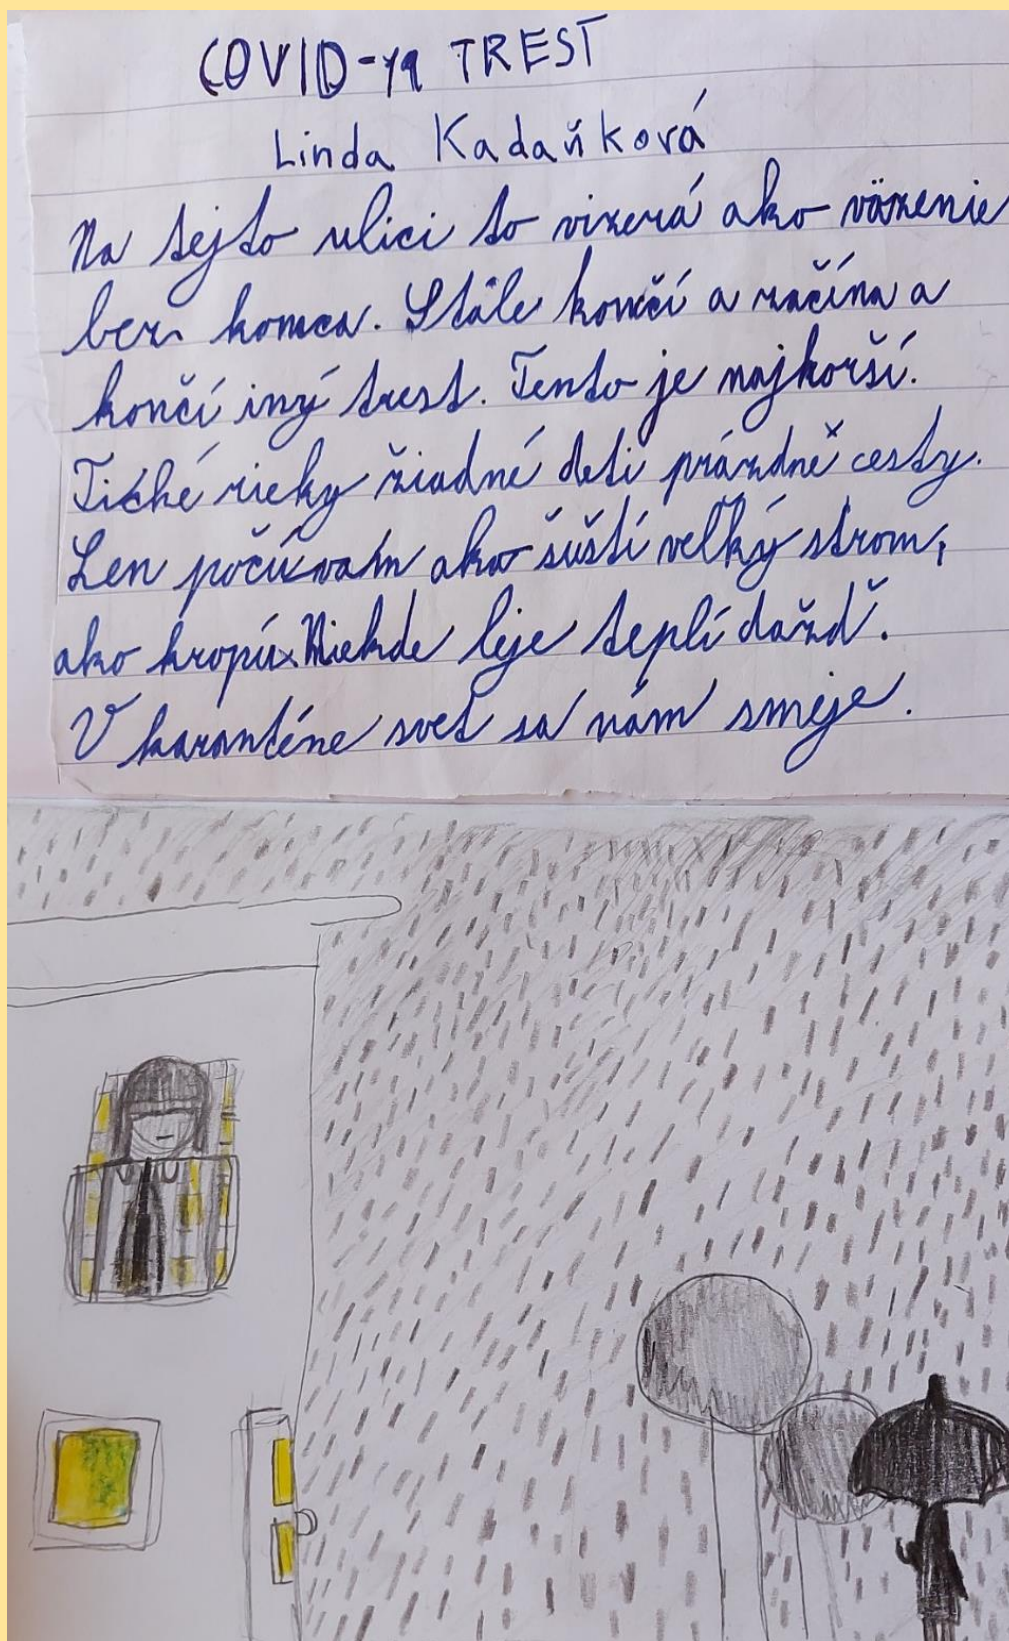 COVID-19 TREST
Linda Kadaňková
Na tejto ulici to vizerá ako väzenie
bez konca. Stále končí a začína a
končí iný trest. Tento je najhorší.
Tiché rieky žiadné deti prázdné cesty.
Len počúvam ako šuští veľký strom,
ako kropí. Niekde leje teplí dažď.
V karanténe svet sa nám smeje.